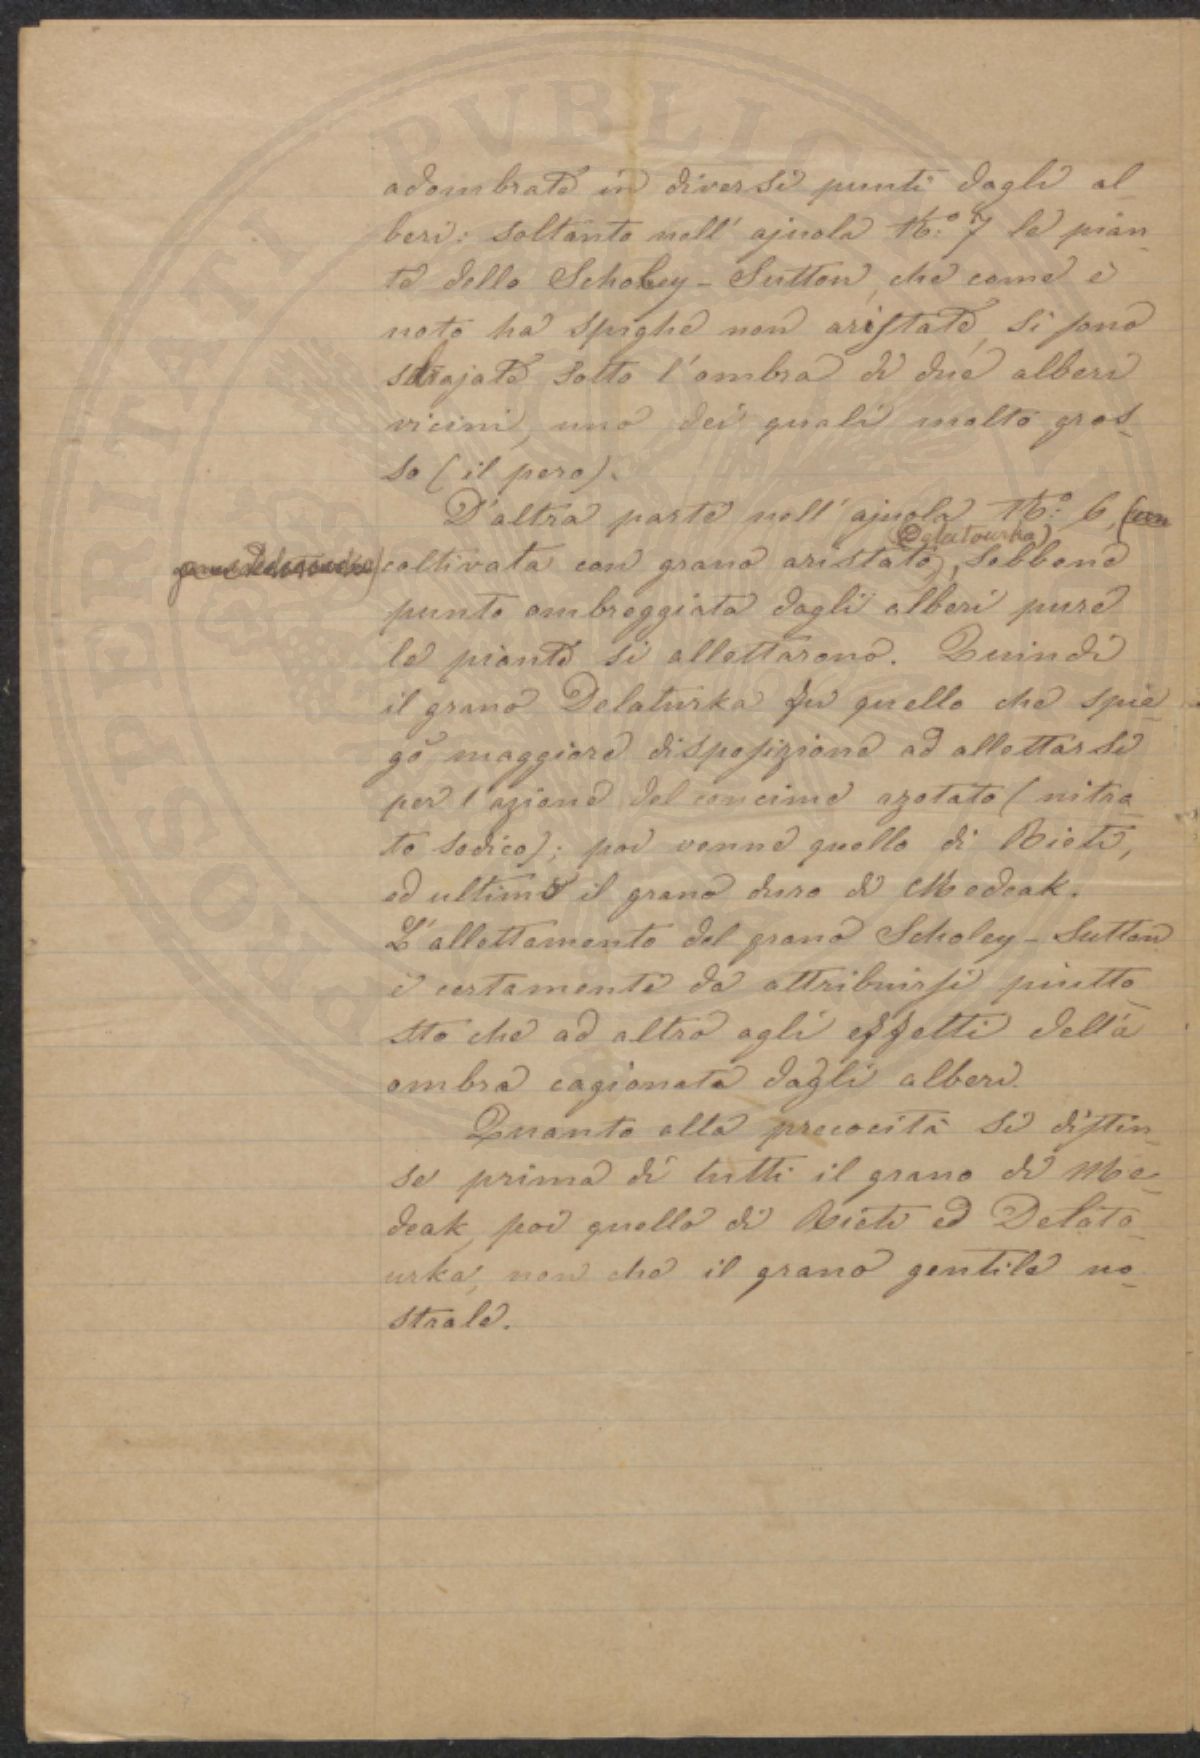 adombrate in diversi punti dagli al
beri: soltanto nell' ajuola N.° 7 le pian-
te dello Scholey-Sutton, che come è
noto ha spighe non aristate, si sono
sdrajate sotto l'ombra di due alberi
vicini, uno dei quali molto gros-
so (il pero).
D'altra parte nell' ajuola N.° 6, (con
(Delatourka)
coltivata con grano aristato, sebbene
punto ombreggiata dagli alberi pure
le piante si allettarono. Quindi
il grano Delaturka fu quello che spie-
gò maggiore disposizione ad allettarsi
per l'azione del concime azotato (nitra
to sodico); poi venne quello di Rieti,
ed ultimo il grano duro di Medeak.
L'allettamento del grano Scholey-Sutton
è certamente da attribuirsi piutto
sto che ad altro agli effetti della
ombra cagionata dagli alberi.
Quanto alla precocità si distin-
se prima di tutti il grano di Me-
deak, poi quello di Rieti ed Delato-
urka, non che il grano gentile no-
strale.
PROSPERITATI PVBLICAE